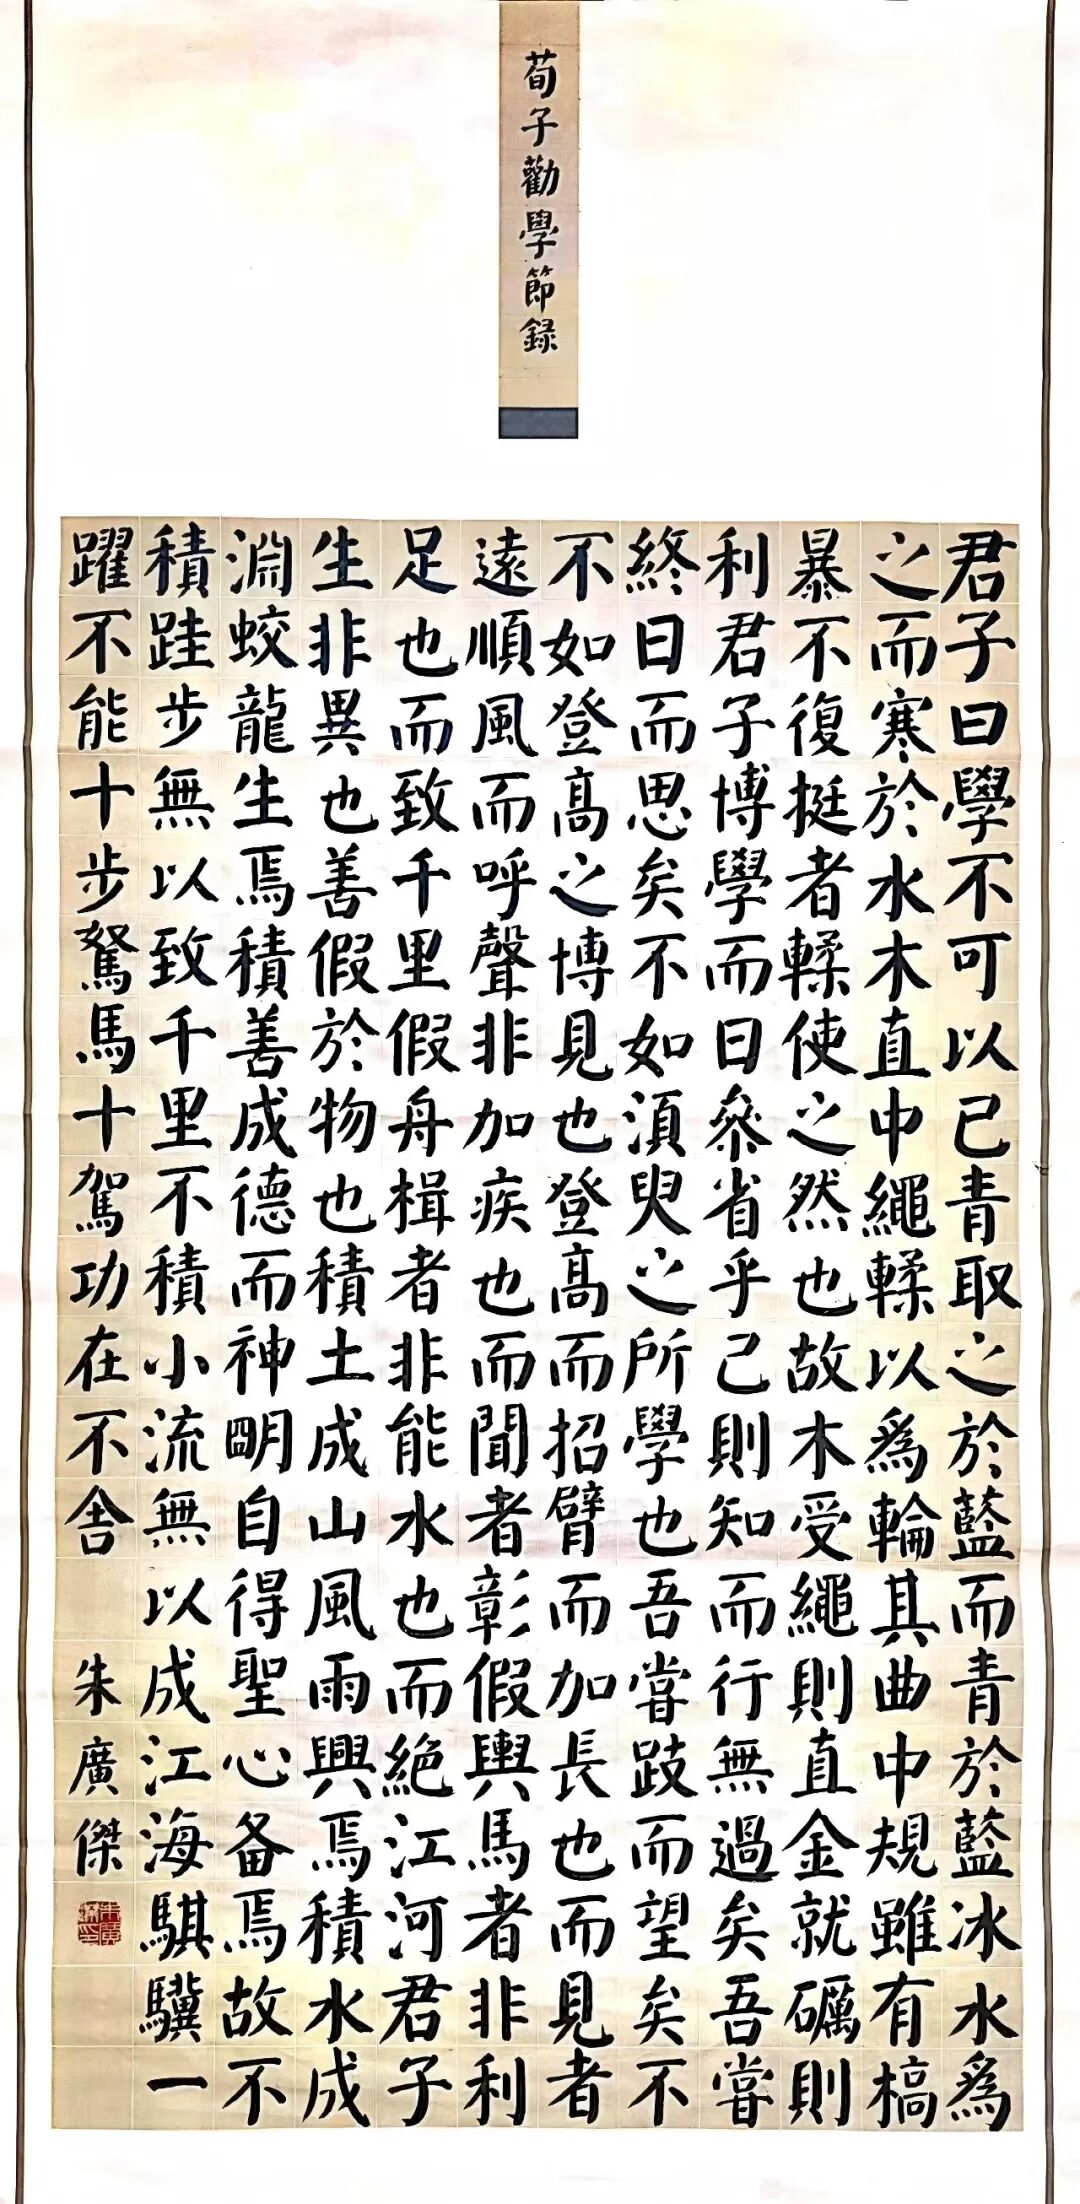 荀子勸學節錄
君子曰學不可以已青取之於藍而青於藍冰水為
之而寒於水木直中繩輮以為輪其曲中規雖有槁
暴不復挺者輮使之然也故木受繩則直金就礪則
利君子博學而日參省乎己則知而行無過矣吾嘗
終日而思矣不如須臾之所學也吾嘗跂而望矣不
不如登髙之博見也登髙而招臂而加長也而見者
遠順風而呼聲非加疾也而聞者彰假輿馬者非利
足也而致千里假舟楫者非能水也而絕江河君子
生非異也善假於物也積土成山風雨興焉積水成
淵蛟龍生焉積善成德而神明自得聖心备焉故不
積跬步無以致千里不積小流無以成江海騏驥一
躍不能十步駑馬十駕功在不舍 朱廣傑